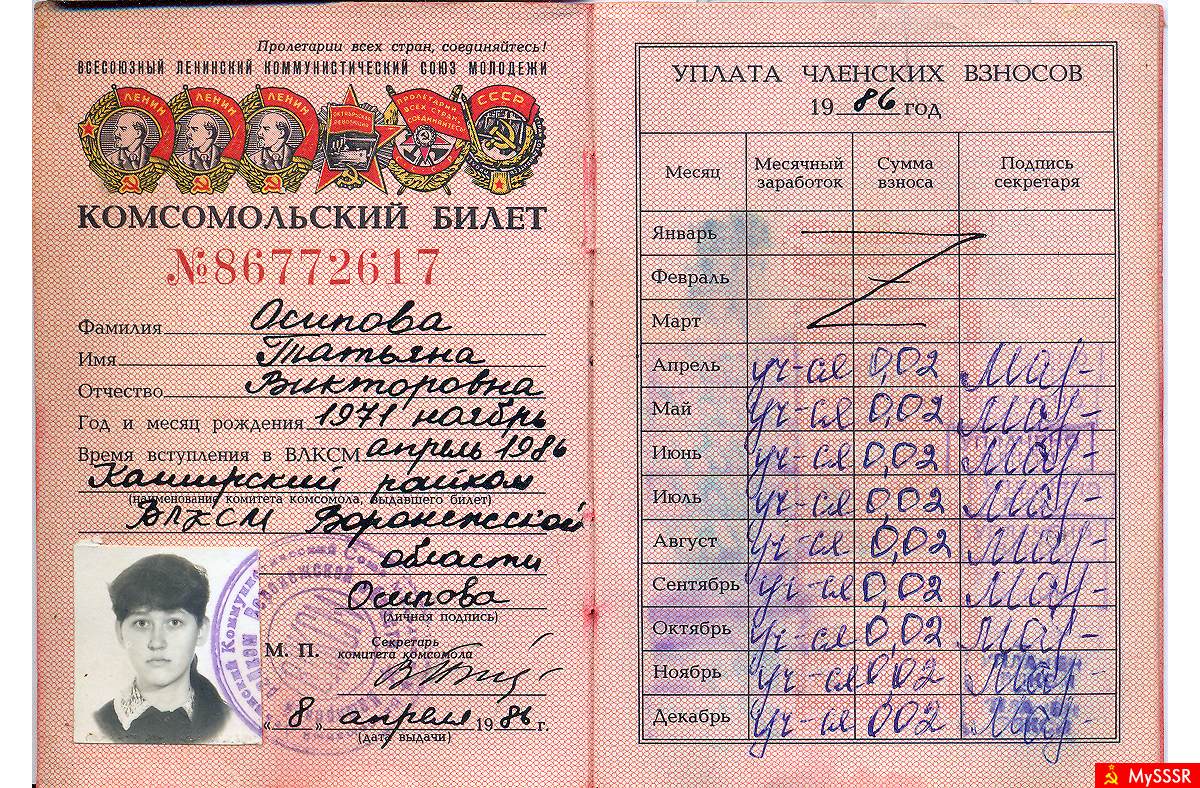 Пролетарии всех стран, соединяйтесь!
ВСЕСОЮЗНЫЙ ЛЕНИНСКИЙ КОММУНИСТИЧЕСКИЙ СОЮЗ МОЛОДЕЖИ
ЛЕНИН ЛЕНИН ЛЕНИН ОКТЯБРЬСКАЯ РЕВОЛЮЦИЯ ПРОЛЕТАРИИ ВСЕХ СТРАН, СОЕДИНЯЙТЕСЬ! СССР
КОМСОМОЛЬСКИЙ БИЛЕТ
№86772617
Фамилия Осипова
Имя Татьяна
Отчество Викторовна
Год и месяц рождения 1971 ноябрь
Время вступления в ВЛКСМ апрель 1986
Каширский райком
(наименование комитета комсомола, выдавшего билет)
ВЛКСМ Воронежской
области
Осипова
(личная подпись)
М. П. Секретарь
комитета комсомола
«8» апреля 1986 г.
(дата выдачи)
УПЛАТА ЧЛЕНСКИХ ВЗНОСОВ
1986 год
Месяц Месячный заработок Сумма взноса Подпись секретаря
Январь
Февраль
Март
Апрель уч-ся 0,02
Май уч-ся 0,02
Июнь уч-ся 0,02
Июль уч-ся 0,02
Август уч-ся 0,02
Сентябрь уч-ся 0,02
Октябрь уч-ся 0,02
Ноябрь уч-ся 0,02
Декабрь уч-ся 0,02
MySSSR